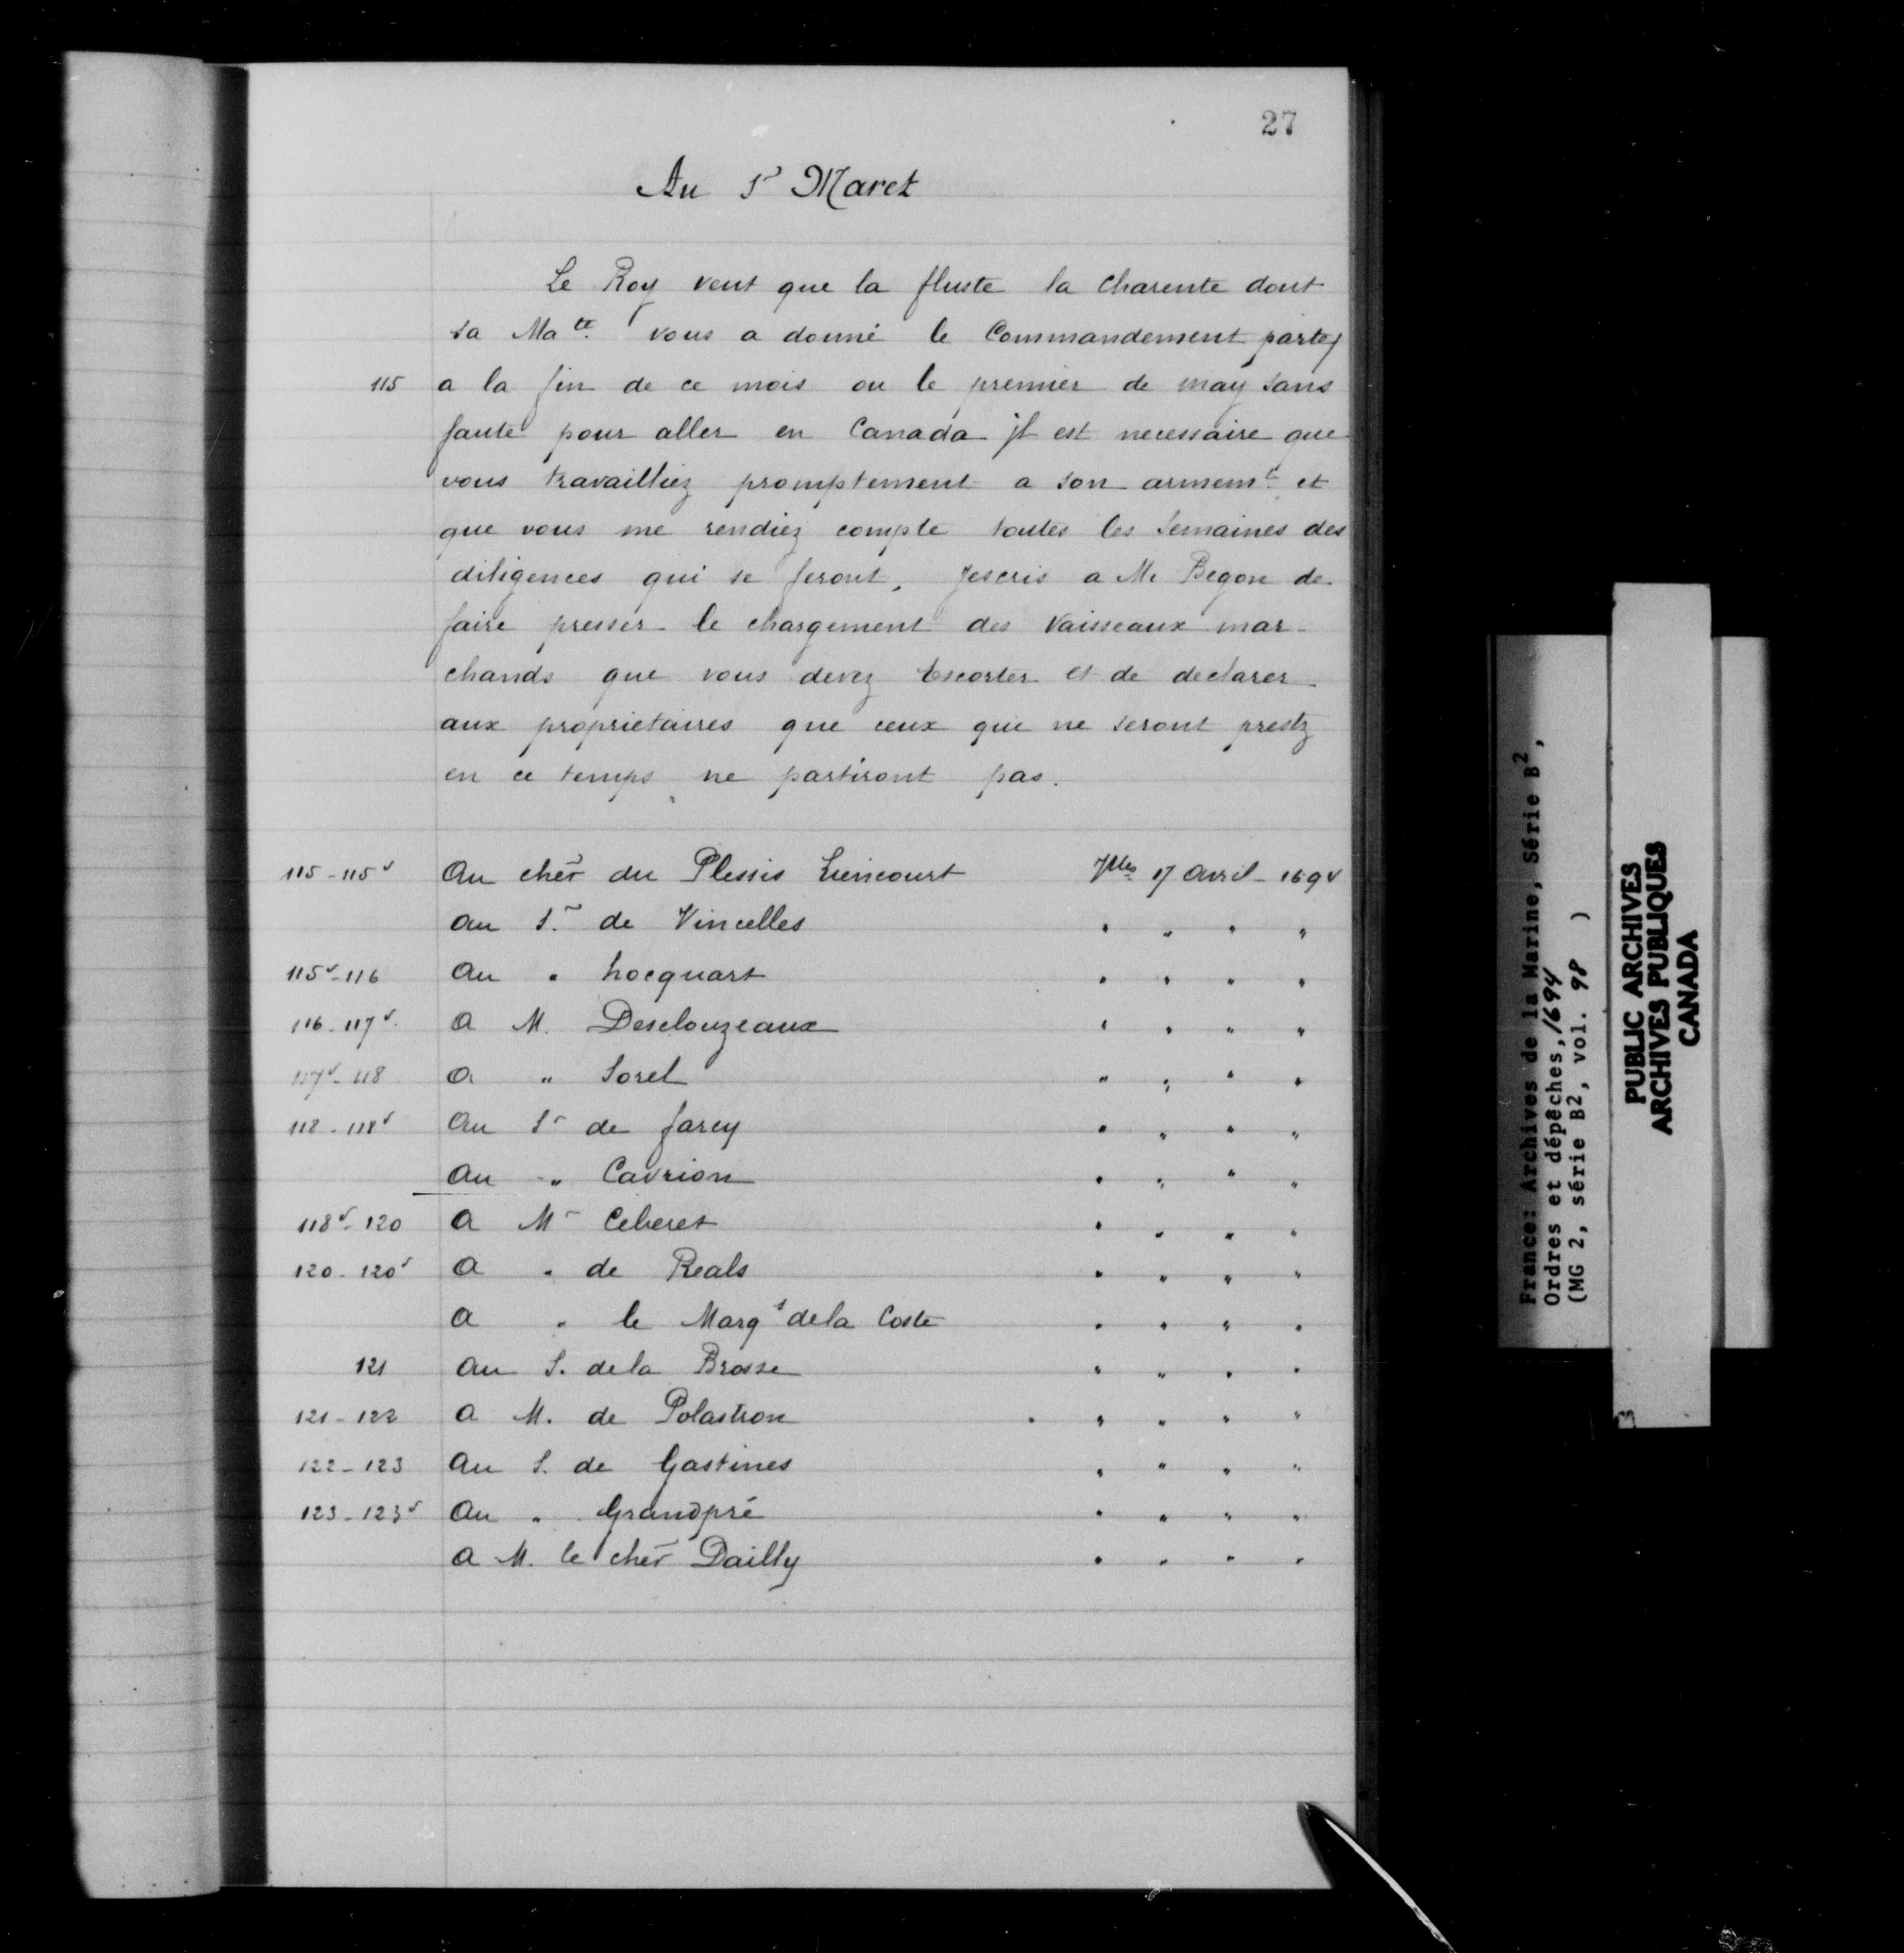 27
Au Sr Maret
Le Roy veut que la fluste la Charente dont
sa Mate. vous a donné le Commandement parte
115 a la fin de ce mois ou le premier de may sans
faute pour aller en Canada jl est necessaire que
vous travailliez promptement a son armemt. et
que vous me rendiez compte toutes les semaines des
diligences qui se feront, Jescris a Mr Begon de
faire presser le chargement des Vaisseaux mar-
chands que vous devez Escorter et de declarer
aux proprietaires que ceux qui ne seront prestz
en ce temps ne partiront pas.
115-115v Au cher du Plessis Liencourt Vlles 17 avril 1694
au Sr. de Vincelles " " " "
115v-116 Au " hocquart " " " "
116-117v. A M. Desclouzeaux " " " "
117v-118 A " Sorel " " " "
118-118v Au Sr de farcy " " " "
Au " Cavrion " " " "
118v-120 A Mr Ceberet " " " "
120-120v A " de Reals " " " "
A " le Marqs dela Coste " " " "
121 Au S. dela Brosse " " " "
121-122 A M. de Polastron " " " "
122-123 Au S. de Gastines " " " "
123-123v Au " Grandpré " " " "
A M. le cher Dailly " " " "
France: Archives de la Marine, Série B2,
Ordres et dépêches, 1694
(MG 2, série B2, vol. 98 )
PUBLIC ARCHIVES
ARCHIVES PUBLIQUES
CANADA